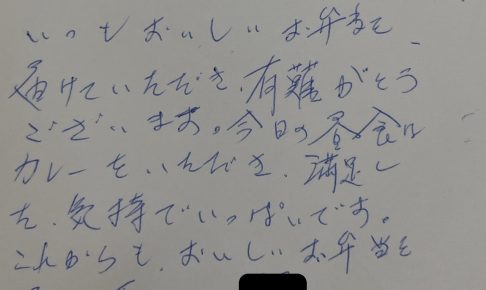 いつもおいしいお弁当を、
届けていただき、有難がとう
ございます。今日の昼食は
カレーをいただき、満足し
た、気持でいっぱいです。
これからも、おいしいお弁当を